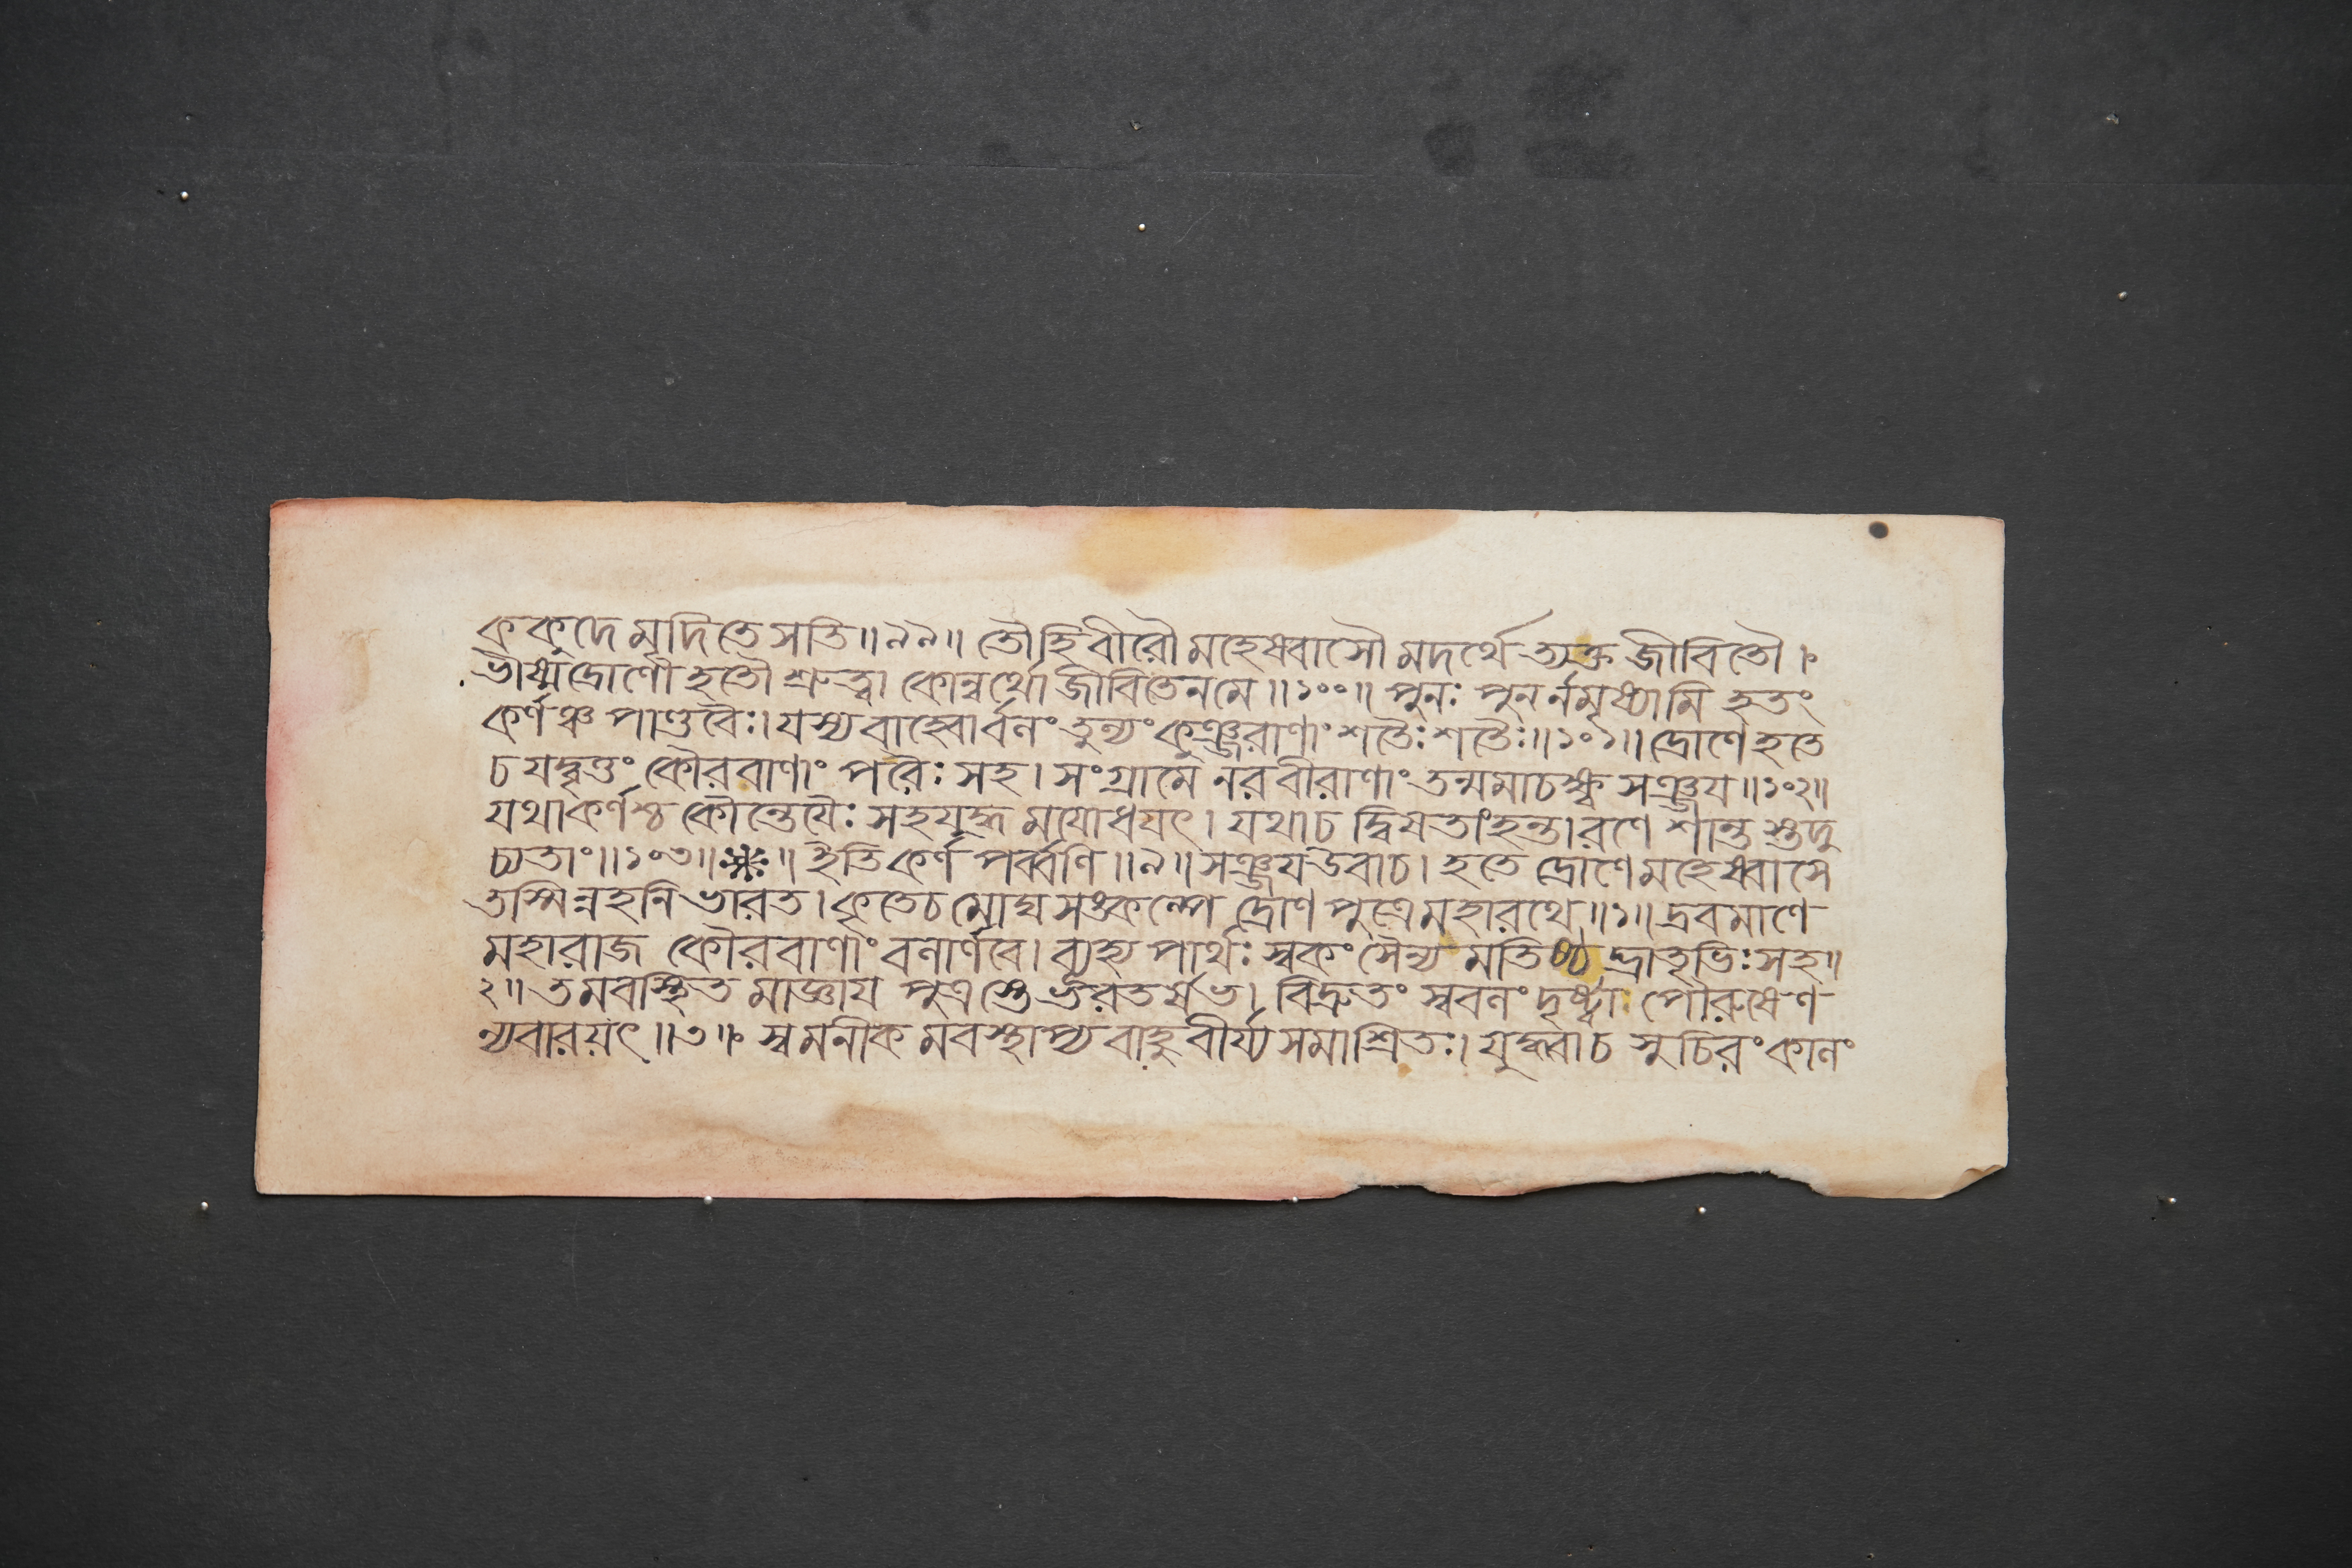 ককুদে মৃদিতে সতি॥৯৯॥ তৌহি বীরৌ মহেষ্বাসৌ মদর্থে ত্যক্ত জীবিতৌ।
ভীষ্মদ্রোণৌ হতৌ শ্রুত্বা কোন্বর্থো জীবিতেনমে॥১০০॥ পুনঃ পুনর্নমৃষ্যামি হতং
কর্ণঞ্চ পাণ্ডবৈঃ। যস্য বাহ্বোর্বলং তুল্যং কুঞ্জরাণাং শতৈঃ শতৈঃ॥১০১॥ দ্রোণে হতে
চ যদ্বৃত্তং কৌরবাণাং পরৈঃ সহ। সংগ্রামে নরবীরাণাং তন্মমাচক্ষ্ব সঞ্জয॥১০২॥
যথাকর্ণশ্চ কৌন্তেযৈঃ সহযুদ্ধ মযোধযৎ। যথাচ দ্বিষতাংহন্তা রণে শান্ত স্তদু
চ্যতাং॥১০৩॥※॥ ইতি কর্ণ পর্ব্বণি॥৯॥ সঞ্জয উবাচ। হতে দ্রোণে মহেষ্বাসে
তস্মিন্নহনি ভারত। কৃতেচ মোঘ সঙ্কল্পে দ্রোণ পুত্রে মহারথে॥১॥ দ্রবমাণে
মহারাজ কৌরবাণাং বলার্ণবে। ব্যূহ্য পার্থঃ স্বকং সৈন্য মতিষ্ঠদ্ভ্রাতৃভিঃ সহ॥
২॥ তমবস্থিত মাজ্ঞায পুত্র স্তে ভরতর্ষভ। বিদ্রুতং স্ববলং দৃষ্ট্বা পৌরুষেণ
ন্যবারয়ৎ॥৩॥ স্বমনীক মবস্থাপ্য বাহুবীর্য্য সমাশ্রিতঃ। যুদ্ধ্বাচ সুচিরং কালং